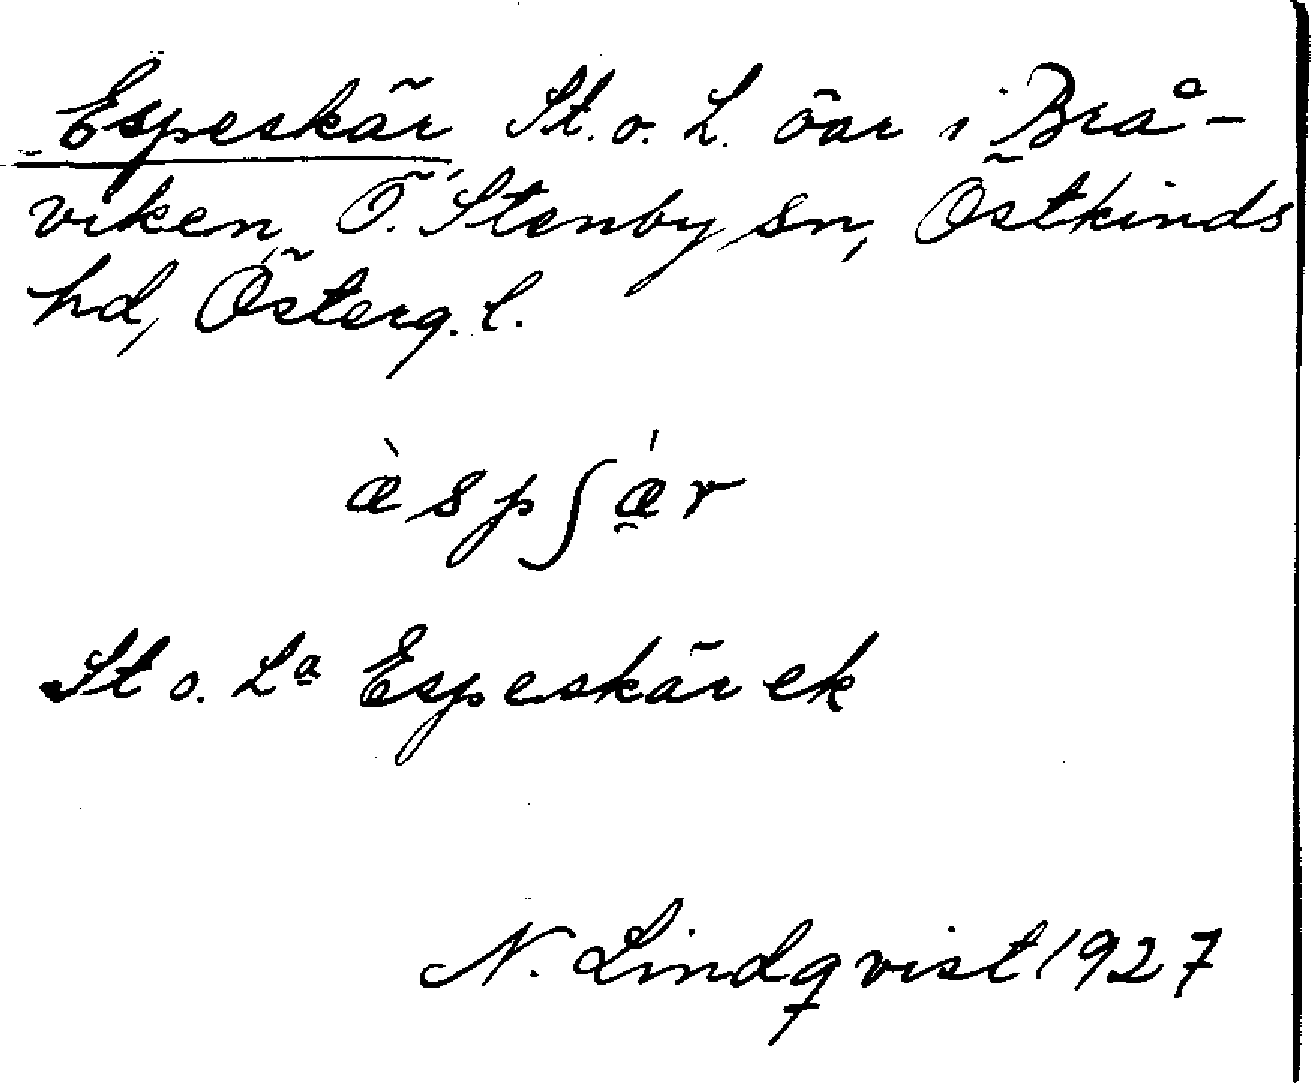 Espeskär St. o. L. öar i Brå-
viken, Ö. Stenby sn, Östkinds
hd, Österg. l.
æ̀spʃǽ̠r
St o. La Espeskär ek
N. Lindqvist 1927